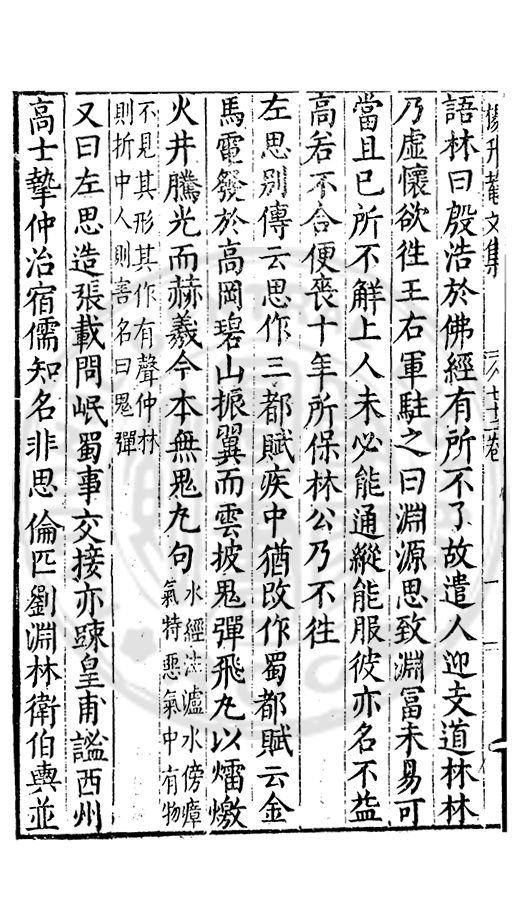 楊升菴文集 卷
語林曰殷浩於佛經有所不了故遣人迎支道林林
乃虛懷欲徃王右軍駐之曰淵源思致淵冨未易可
當且巳所不觧上人未必能通縱能服彼亦名不益
高若不合便喪十年所保林公乃不徃
左思别傳云思作三都賦疾中猶改作蜀都賦云金
馬電發於高岡碧山振翼而雲披鬼彈飛丸以㸌燩
火井騰光而赫羲今本無鬼丸句水經注瀘水傍瘴氣特惡氣中有物
不見其形其作有聲仲林則折中人則害名曰鬼彈
又曰左思造張載問岷蜀事交接亦踈皇甫謐西州
高士摯仲治宿儒知名非思倫匹劉淵林衛伯輿並